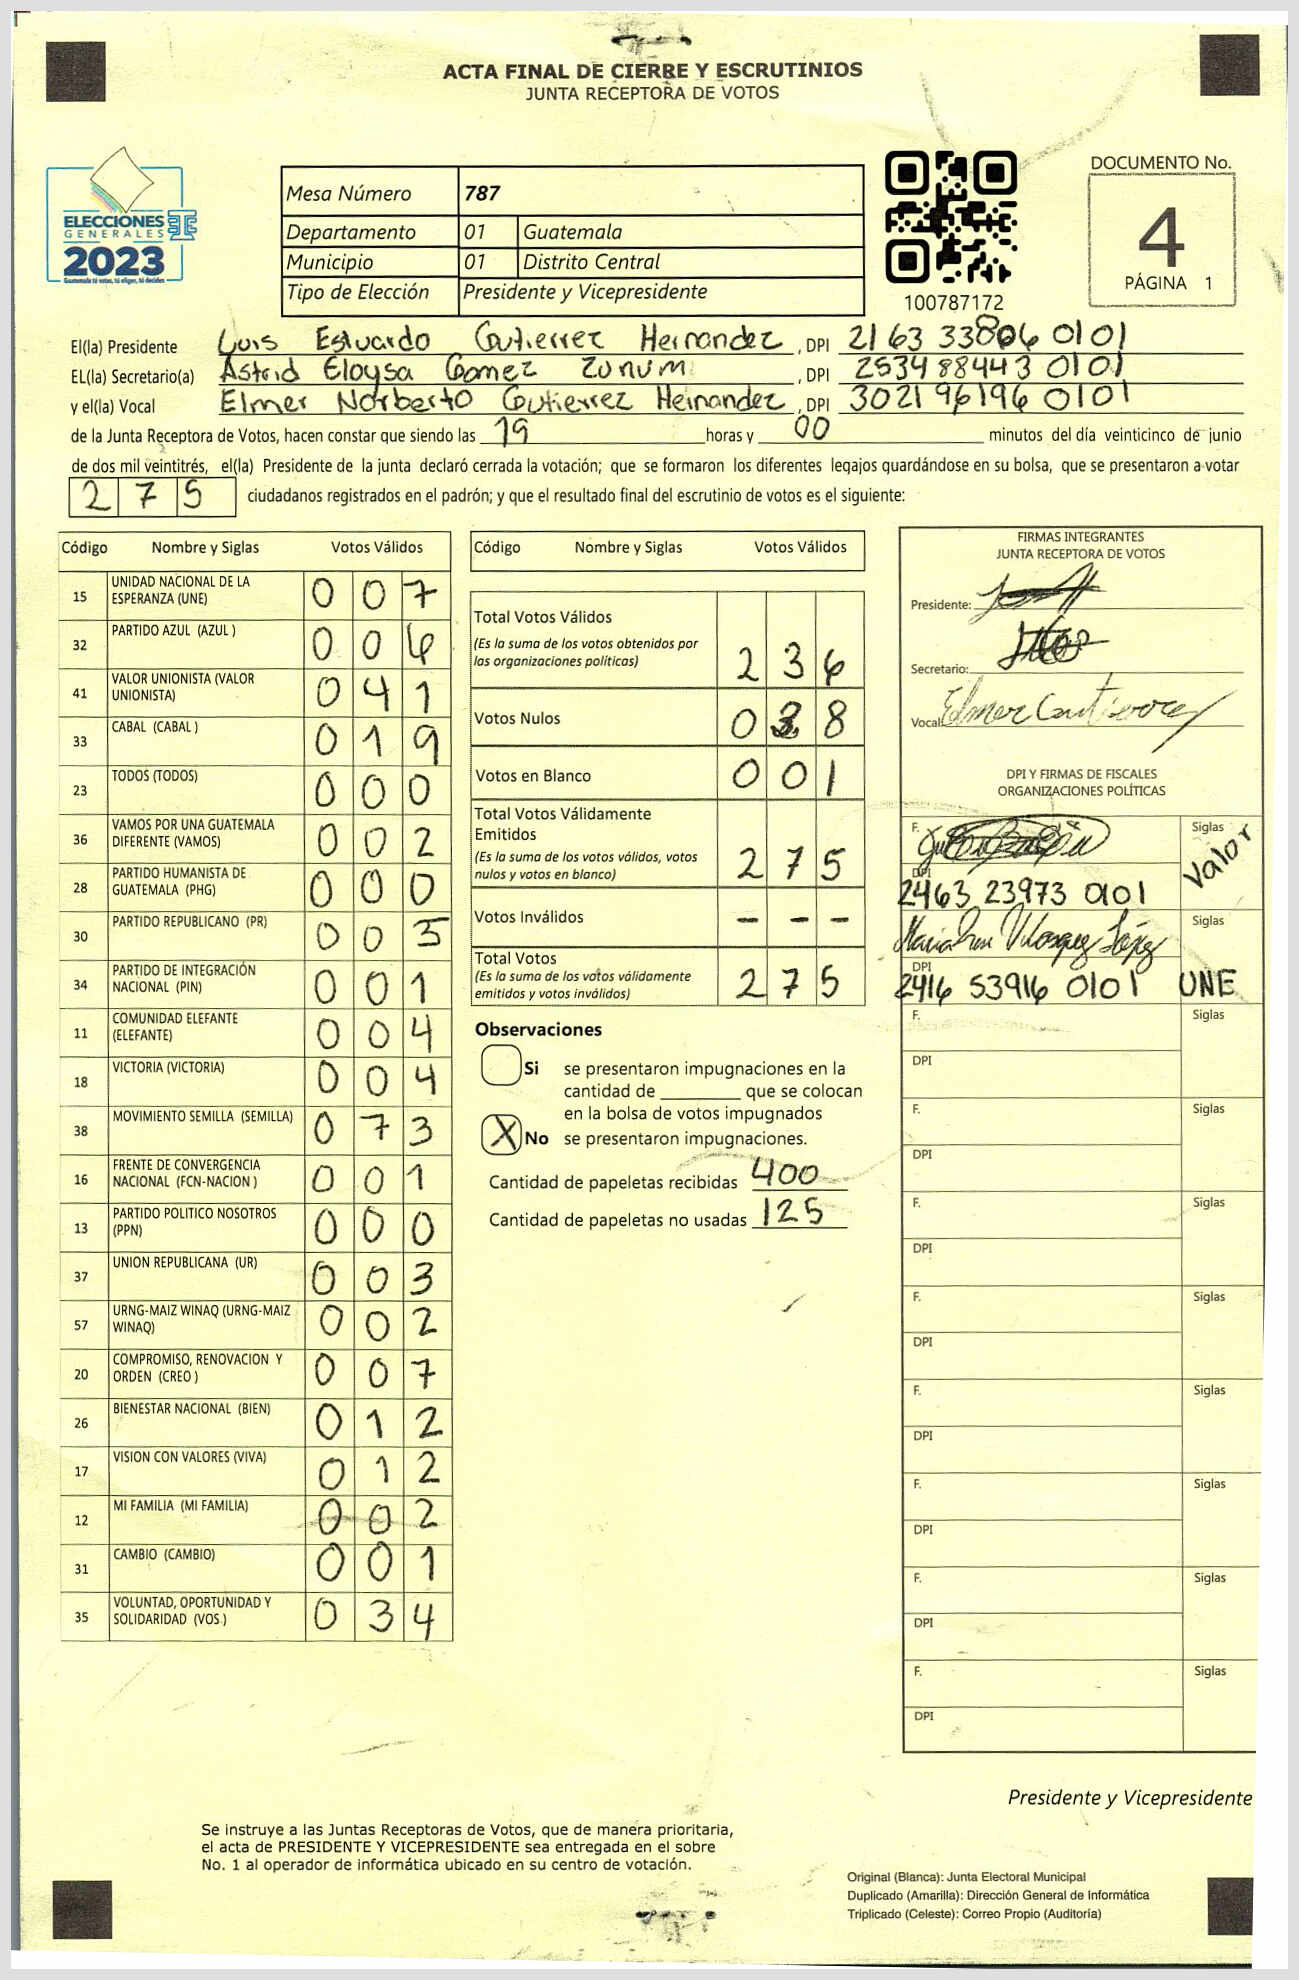 ACTA FINAL DE CIERRE Y ESCRUTINIOS
JUNTA RECEPTORA DE VOTOS
ELECCIONES
GENERALES
2023
Guatemala tú votas, tú eliges, tú decides
Mesa Número 787
Departamento 01 Guatemala
Municipio 01 Distrito Central
Tipo de Elección Presidente y Vicepresidente
100787172
DOCUMENTO No.
4
PÁGINA 1
El(la) Presidente Luis Estuardo Gutierrez Hernandez, DPI 2163 33806 0101
EL(la) Secretario(a) Astrid Eloysa Gomez Zunum, DPI 2534 88443 0101
y el(la) Vocal Elmer Norberto Gutierrez Hernandez, DPI 3021 96196 0101
de la Junta Receptora de Votos, hacen constar que siendo las 19 horas y 00 minutos del día veinticinco de junio
de dos mil veintitrés, el(la) Presidente de la junta declaró cerrada la votación; que se formaron los diferentes legajos guardándose en su bolsa, que se presentaron a votar
275 ciudadanos registrados en el padrón; y que el resultado final del escrutinio de votos es el siguiente:
Código Nombre y Siglas Votos Válidos
15 UNIDAD NACIONAL DE LA ESPERANZA (UNE) 0 0 7
32 PARTIDO AZUL (AZUL ) 0 0 6
41 VALOR UNIONISTA (VALOR UNIONISTA) 0 4 1
33 CABAL (CABAL ) 0 1 9
23 TODOS (TODOS) 0 0 0
36 VAMOS POR UNA GUATEMALA DIFERENTE (VAMOS) 0 0 2
28 PARTIDO HUMANISTA DE GUATEMALA (PHG) 0 0 0
30 PARTIDO REPUBLICANO (PR) 0 0 5
34 PARTIDO DE INTEGRACIÓN NACIONAL (PIN) 0 0 1
11 COMUNIDAD ELEFANTE (ELEFANTE) 0 0 4
18 VICTORIA (VICTORIA) 0 0 4
38 MOVIMIENTO SEMILLA (SEMILLA) 0 7 3
16 FRENTE DE CONVERGENCIA NACIONAL (FCN-NACION ) 0 0 1
13 PARTIDO POLITICO NOSOTROS (PPN) 0 0 0
37 UNION REPUBLICANA (UR) 0 0 3
57 URNG-MAIZ WINAQ (URNG-MAIZ WINAQ) 0 0 2
20 COMPROMISO, RENOVACION Y ORDEN (CREO ) 0 0 7
26 BIENESTAR NACIONAL (BIEN) 0 1 2
17 VISION CON VALORES (VIVA) 0 1 2
12 MI FAMILIA (MI FAMILIA) 0 0 2
31 CAMBIO (CAMBIO) 0 0 1
35 VOLUNTAD, OPORTUNIDAD Y SOLIDARIDAD (VOS.) 0 3 4
Código Nombre y Siglas Votos Válidos
Total Votos Válidos
(Es la suma de los votos obtenidos por
las organizaciones políticas) 2 3 6
Votos Nulos 0 3 8
Votos en Blanco 0 0 1
Total Votos Válidamente
Emitidos
(Es la suma de los votos válidos, votos
nulos y votos en blanco) 2 7 5
Votos Inválidos - - -
Total Votos
(Es la suma de los votos válidamente
emitidos y votos inválidos) 2 7 5
Observaciones
Si se presentaron impugnaciones en la
cantidad de ________ que se colocan
en la bolsa de votos impugnados
X No se presentaron impugnaciones.
Cantidad de papeletas recibidas 400
Cantidad de papeletas no usadas 125
FIRMAS INTEGRANTES
JUNTA RECEPTORA DE VOTOS
Presidente:
Secretario:
Vocal: Elmer Gutierrez
DPI Y FIRMAS DE FISCALES
ORGANIZACIONES POLÍTICAS
F. Siglas Valor
DPI
2463 23973 0101
Siglas
DPI
2416 53916 0101 UNE
F. Siglas
DPI
F. Siglas
DPI
F. Siglas
DPI
F. Siglas
DPI
F. Siglas
DPI
F. Siglas
DPI
F. Siglas
DPI
F. Siglas
DPI
Presidente y Vicepresidente
Se instruye a las Juntas Receptoras de Votos, que de manera prioritaria,
el acta de PRESIDENTE Y VICEPRESIDENTE sea entregada en el sobre
No. 1 al operador de informática ubicado en su centro de votación.
Original (Blanca): Junta Electoral Municipal
Duplicado (Amarilla): Dirección General de Informática
Triplicado (Celeste): Correo Propio (Auditoría)